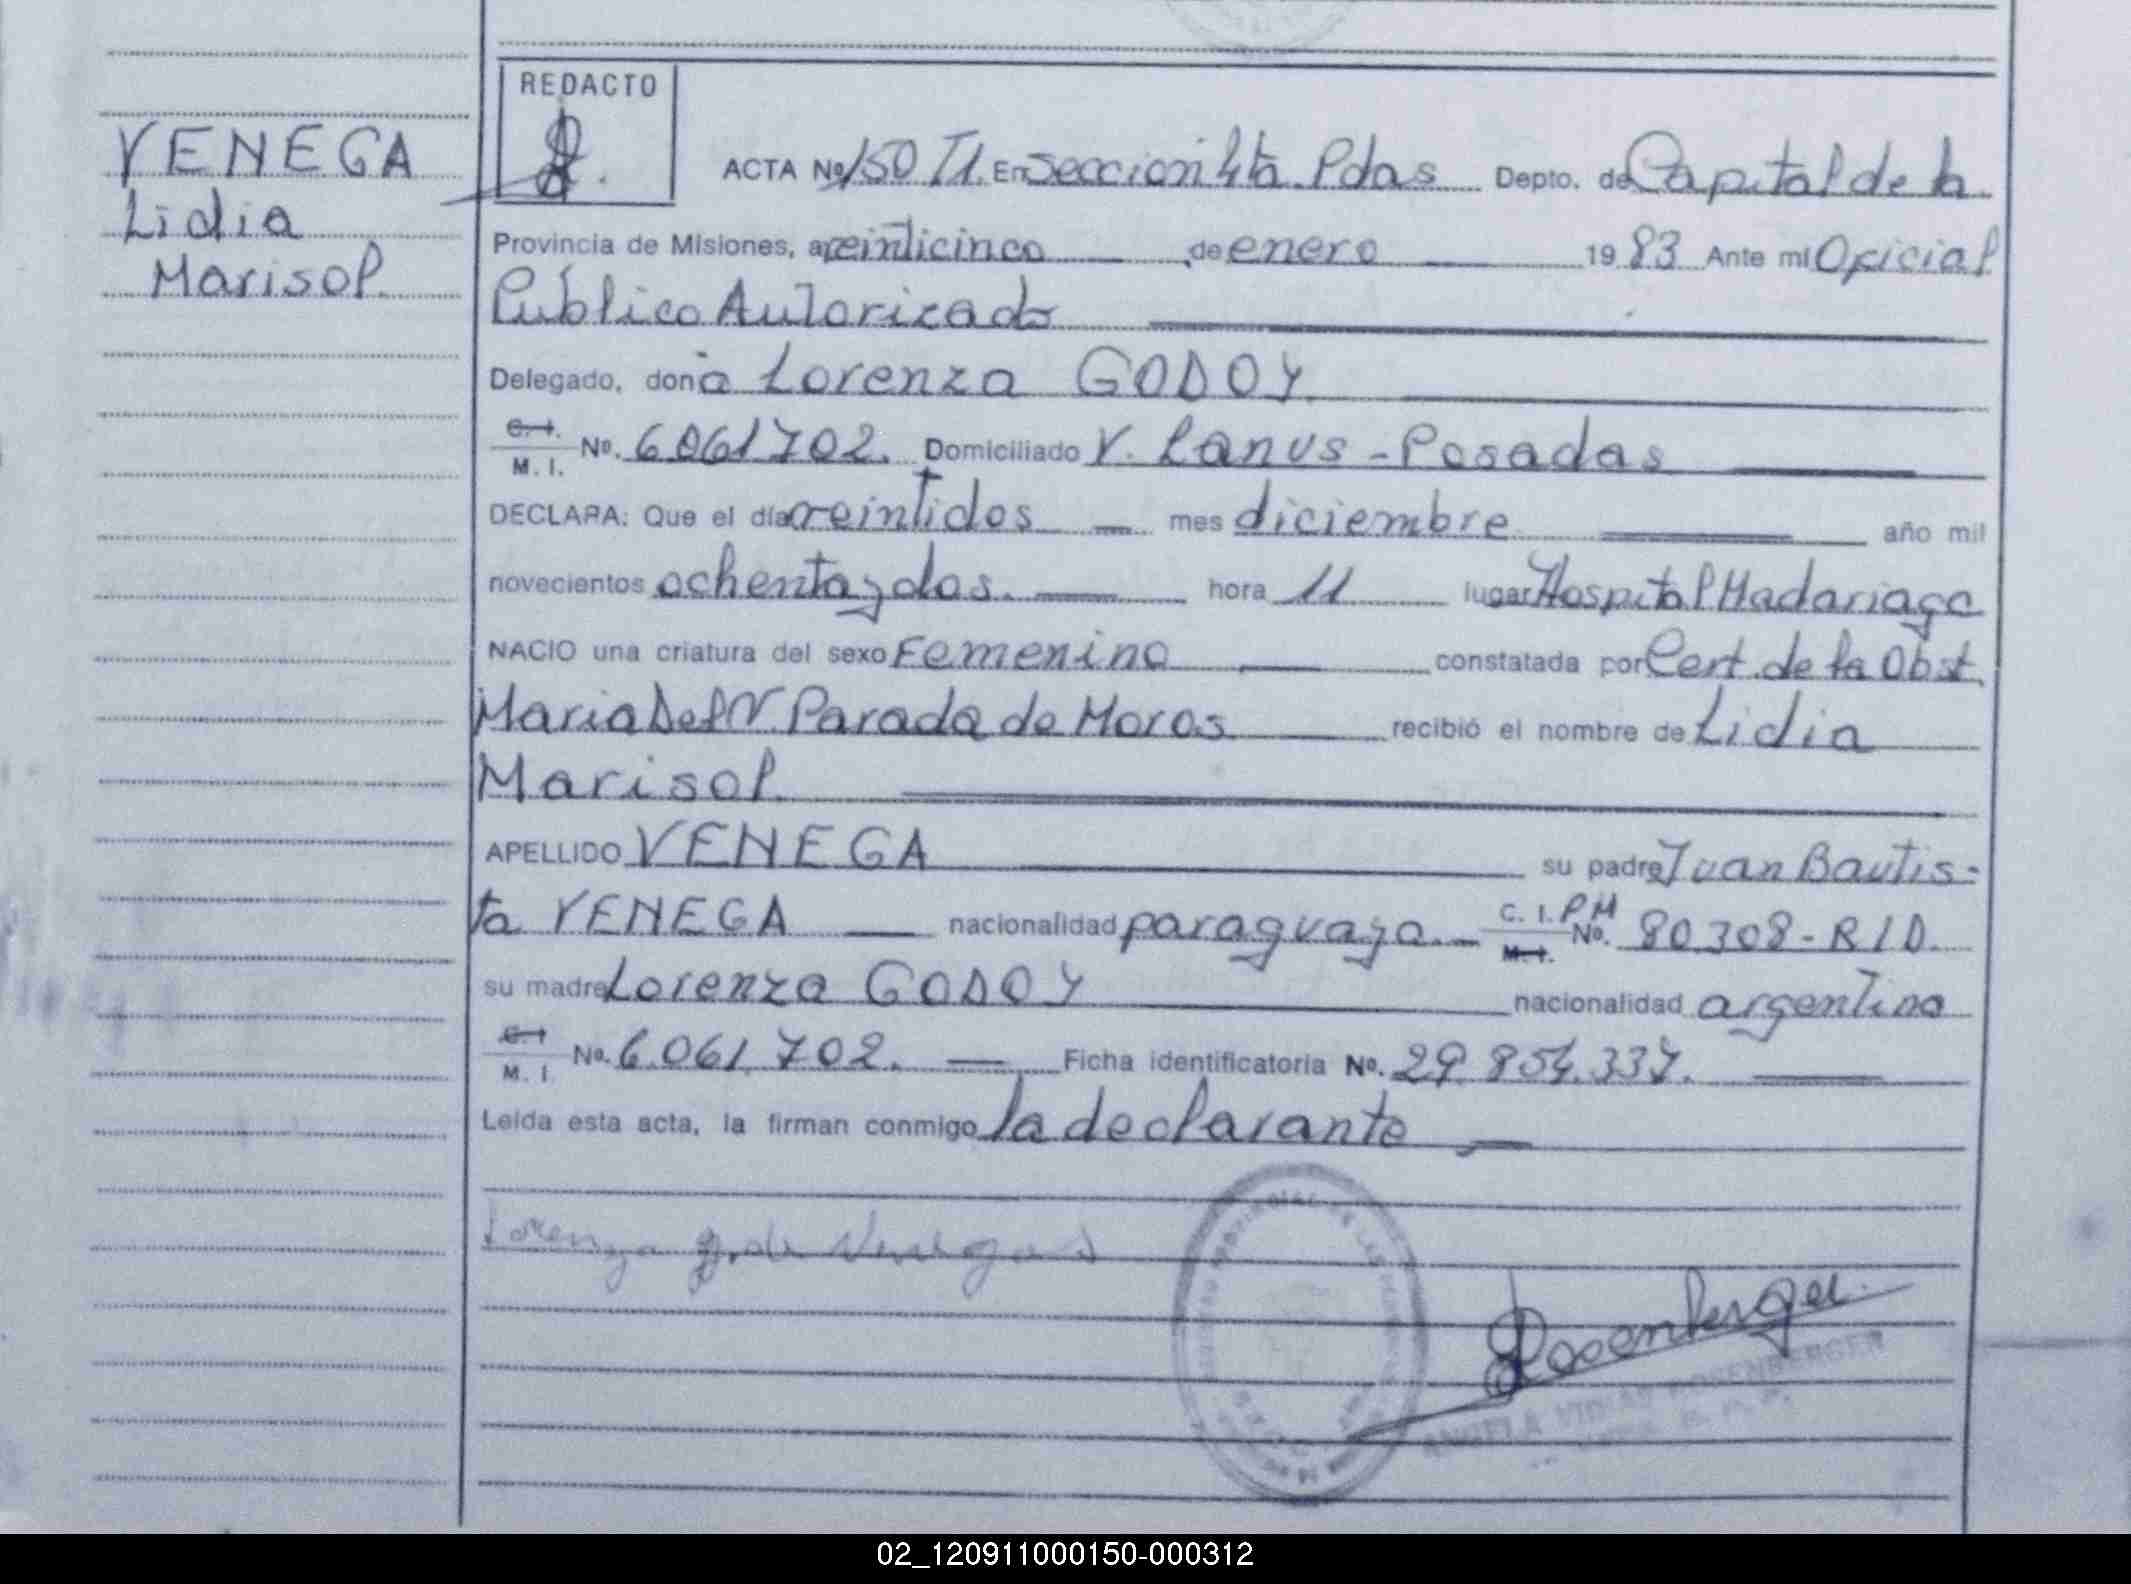 VENEGA
Lidia
Marisol
REDACTO
ACTA No 150 T1. En Seccion 4ta. Pdas Depto. de Capital de la
Provincia de Misiones, a veinticinco de enero 1983 Ante mi Oficial
Público Autorizado
Delegado, don a Lorenza GODOY
C. I. M. I. No. 6061702. Domiciliado V. Lanus - Posadas
DECLARA: Que el día veintidos mes diciembre año mil
novecientos ochenta y dos. hora 11 lugar Hospital Madariaga
NACIO una criatura del sexo Femenino constatada por Cert. de la Obst.
Maria Del V. Parada de Moros recibió el nombre de Lidia
Marisol
APELLIDO VENEGA su padre Juan Bautis-
ta VENEGA nacionalidad paraguaya. C. I. PM M. I. No. 80.308 - RID.
su madre Lorenza GODOY nacionalidad argentina
C. I. M. I. No. 6.061.702. Ficha identificatoria No. 29.854.337.
Leída esta acta, la firman conmigo la declarante
Lorenza g. de Venegas
Rosenberger
ANGELA ROSENBERGER
02_120911000150-000312